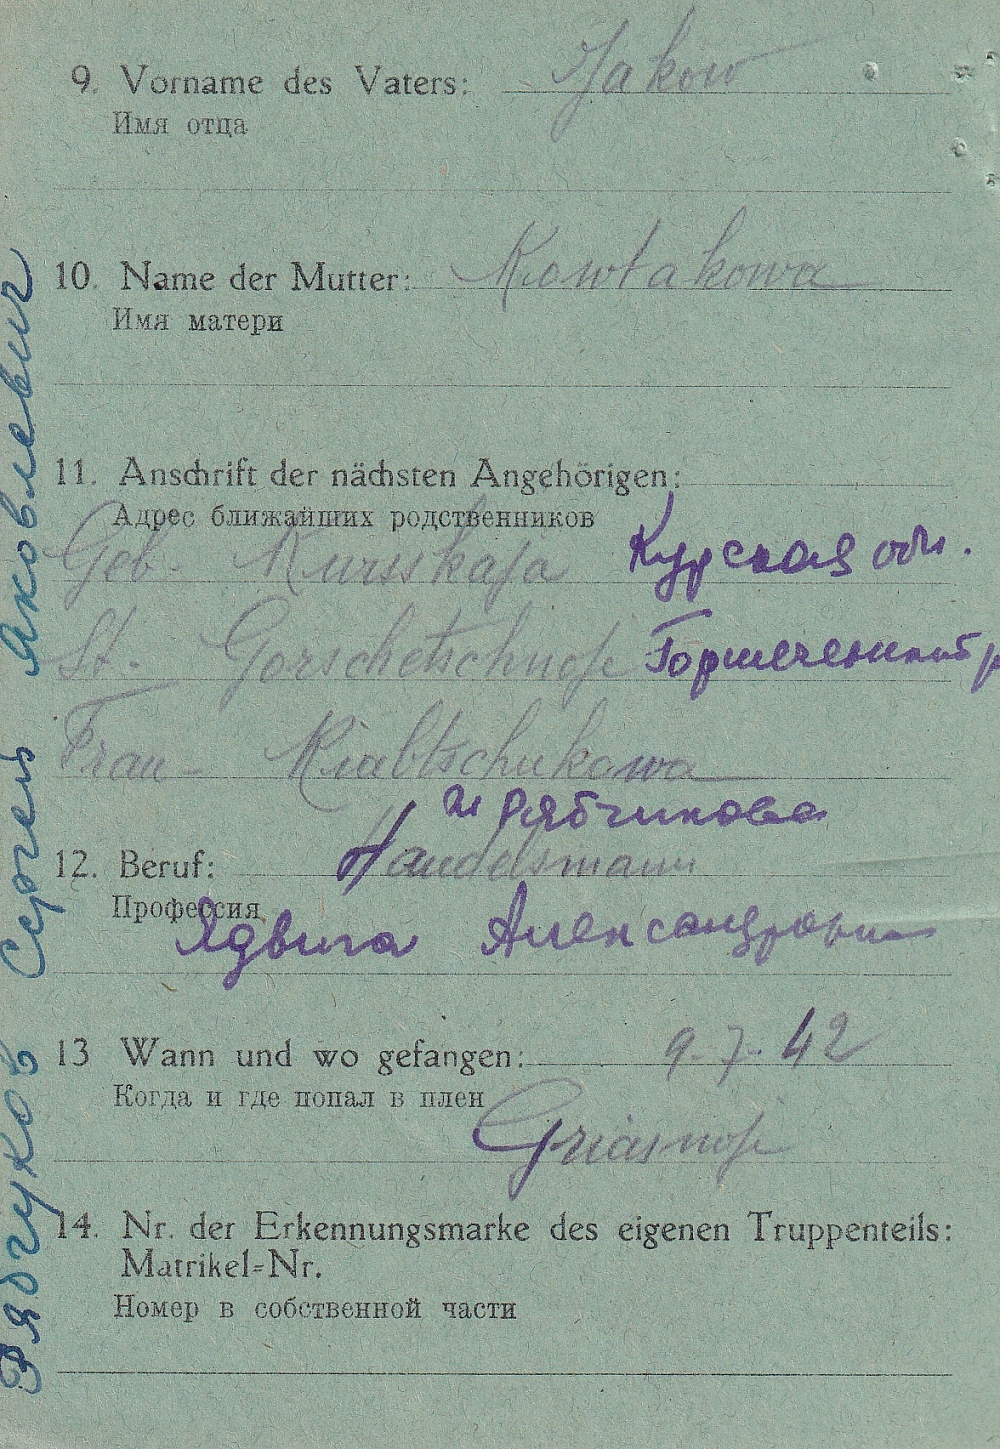 9. Vorname des Vaters: Jakow
Имя отца
10. Name der Mutter: Kowtakowa
Имя матери
11. Anschrift der nächsten Angehörigen:
Адрес ближайших родственников
Geb. Kursskaja Курская обл.
St. Gorschetschnoje Горшеченский р
Frau- Riabtschukowa
Рябчукова
12. Beruf: Handelsmann
Профессия
Ядвига Александровна
13 Wann und wo gefangen: 9.7.42
Когда и где попал в плен
Griasnoje
14. Nr. der Erkennungsmarke des eigenen Truppenteils:
Matrikel=Nr.
Номер в собственной части
Рябчуков Сергей Яковлевич